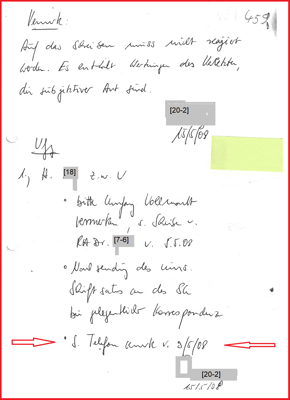 Vermerk: 459
Auf das Schreiben muss nicht reagiert
werden. Es enthält Wertungen des
die subjektiver Art sind.
[20-2]
15/5/08
Vfg
1, H. [18] z.w. V
• bitte Umfang Vollmacht
vermerken, s. Schreiben v.
RA Dr. [7-6] v. 5.5.08
• des
Schriftsatzes an das
bei gelegentlicher Korrespondenz
• S. Telefonvermerk v. 9/5/08
[20-2]
15/5/08